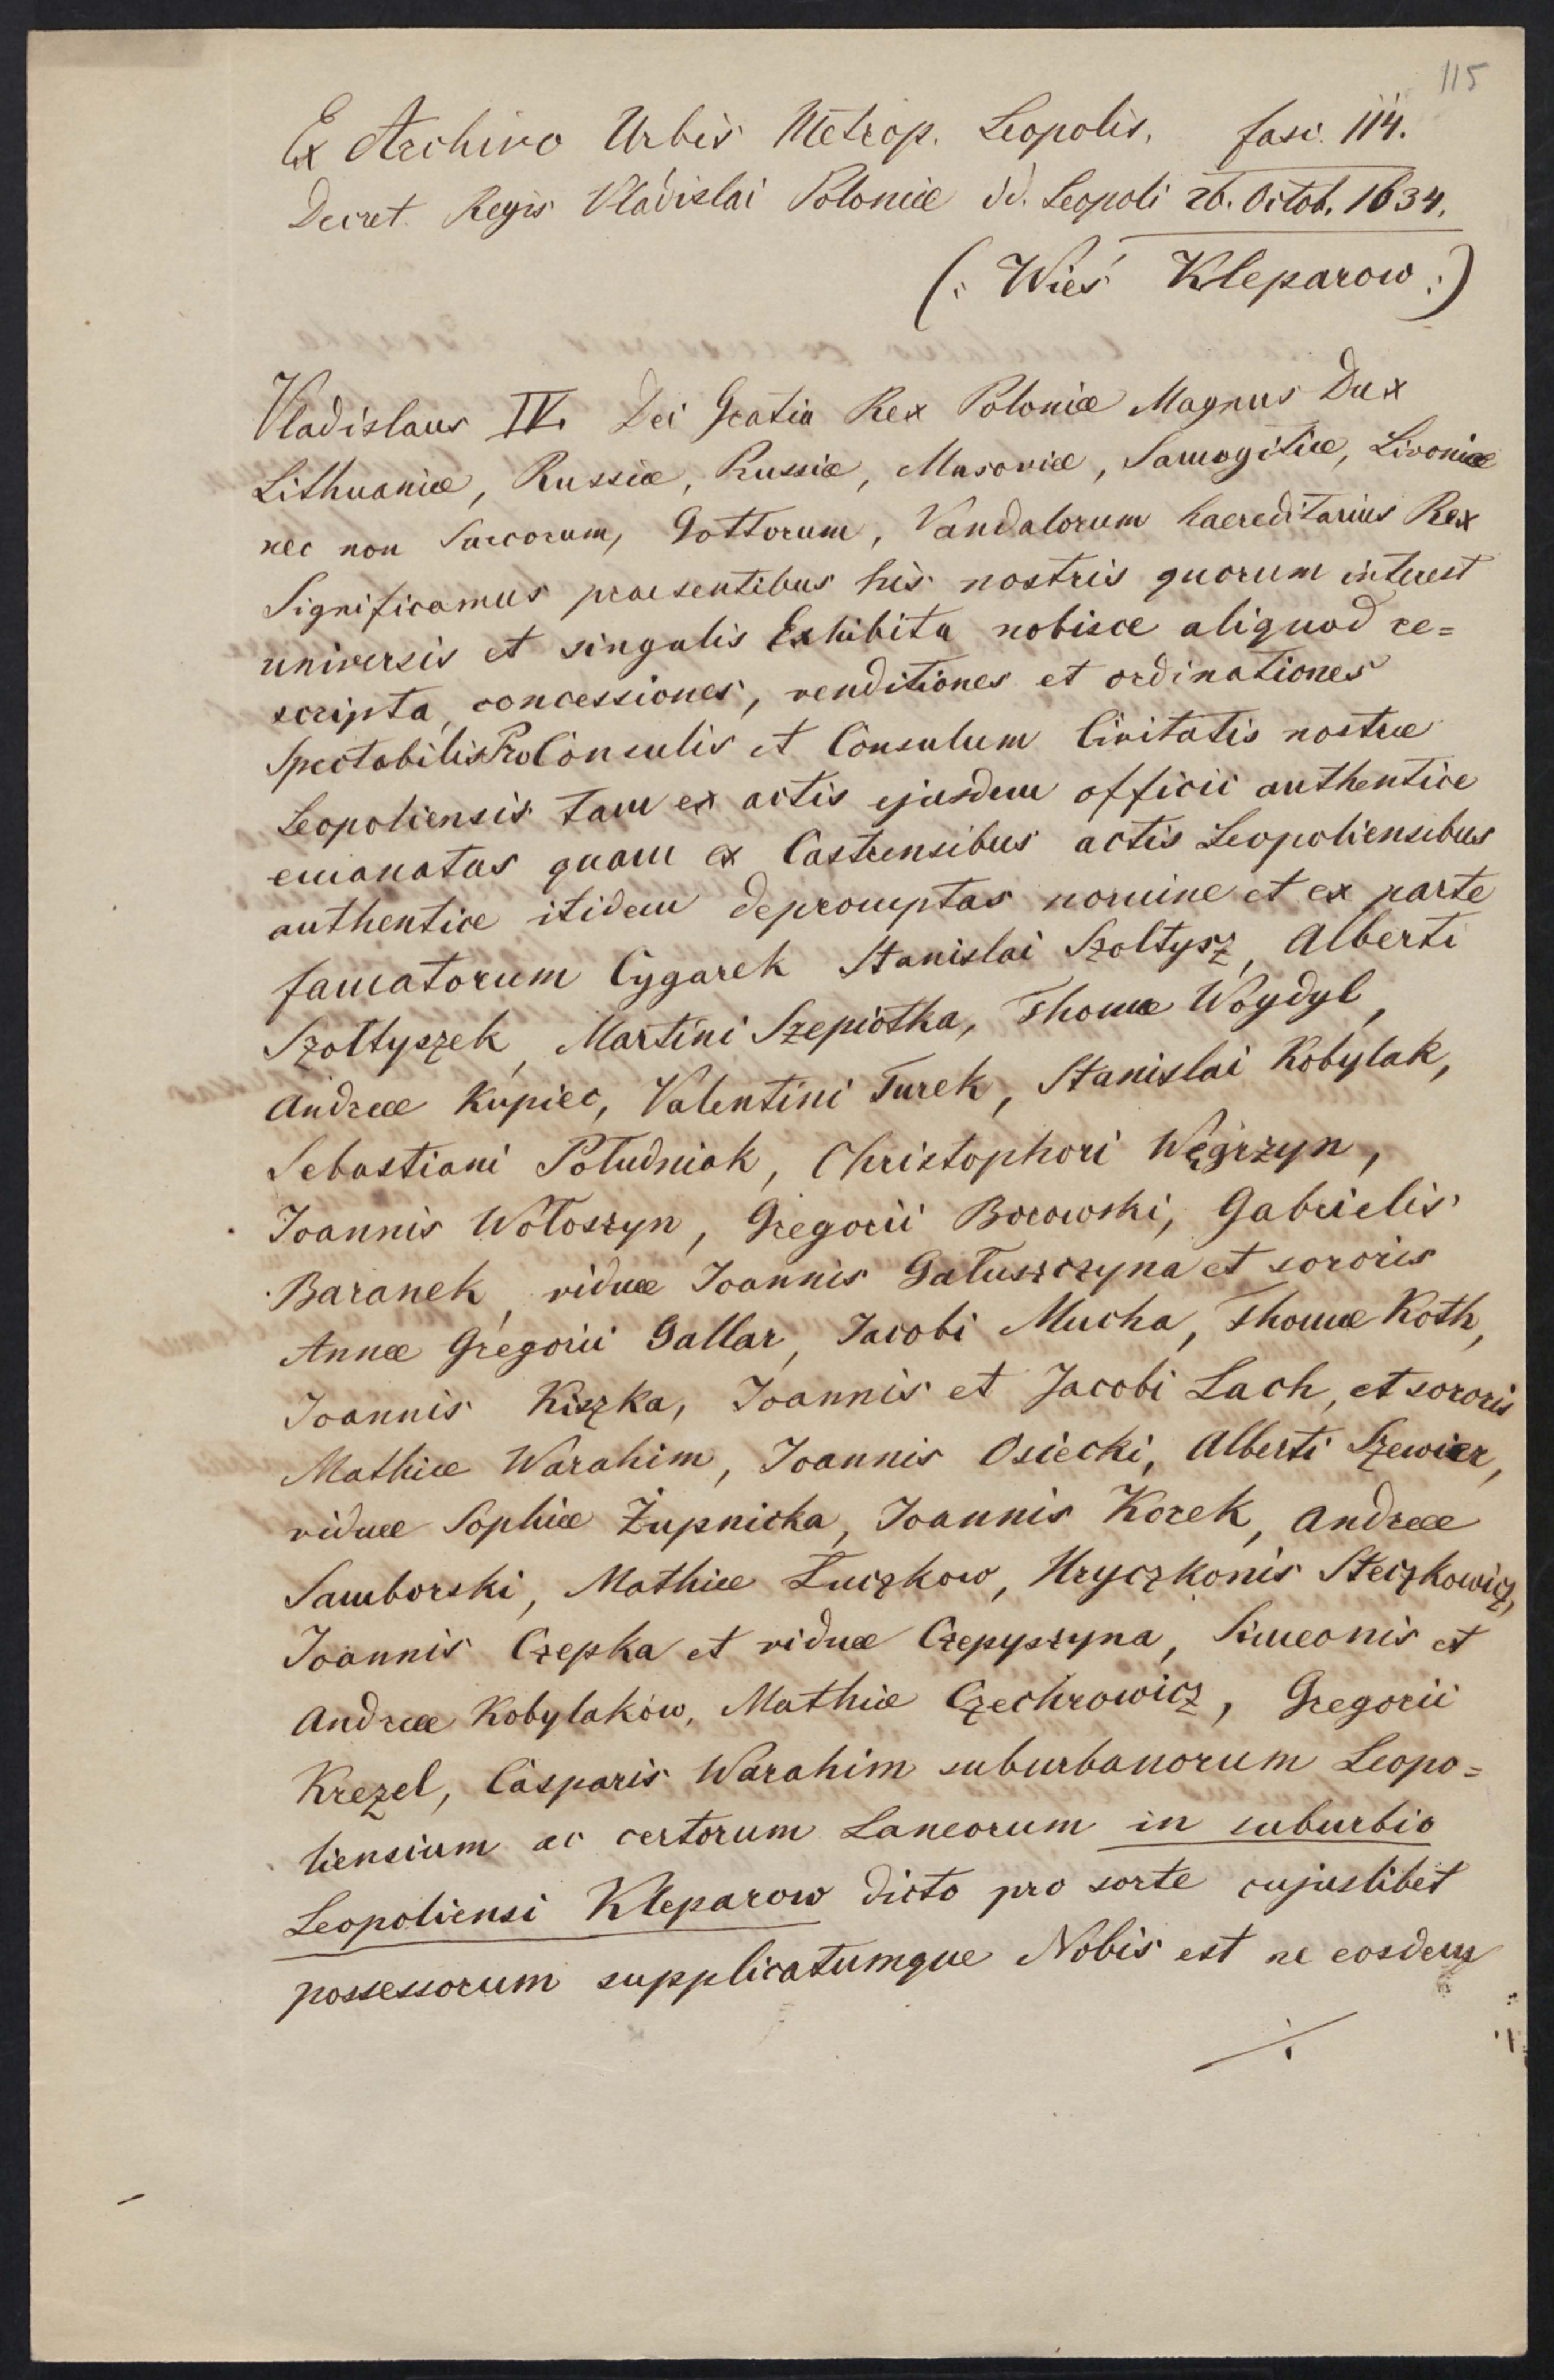 115
Ex Archivo Urbis Metrop. Leopolis. fasc. 114.
Decret. Regis Vladislai Poloniæ dd. Leopoli 26. Octob. 1634.
(: Wieś Kleparow :)
Vladislaus IV. Dei Gratia Rex Poloniæ Magnus Dux
Lithuaniæ, Russiæ, Prussiæ, Masoviæ, Samogitiæ, Livoniæ
nec non Suecorum, Gottorum, Vandalorum haereditarius Rex
Significamus praesentibus his nostris quorum interest
universis et singulis Exhibita nobisce aliquod re=
scripta, concessiones, venditiones et ordinationes
Spectabilis ProConsulis et Consulum Civitatis nostræ
Leopoliensis tam ex actis ejusdem officii authentice
emanatas quam ex Castrensibus actis Leopoliensibus
authentice itidem depromptas nomine et ex parte
famatorum Cygarek Stanislai Szoltysz, Alberti
Szoltyszek, Martini Szepiotka, Thomæ Woydyl,
Andreæ Kupiec, Valentini Turek, Stanislai Kobylak,
Sebastiani Południak, Christophori Węgrzyn,
Joannis Wołoszyn, Gregorii Borowski, Gabrielis
Baranek, viduæ Joannis Gałuszczyna et sororis
Annæ Gregorii Gallar, Jacobi Mucha, Thomæ Koth,
Joannis Kiszka, Joannis et Jacobi Lach, et sororis
Mathiæ Warahim, Joannis Osiecki, Alberti Szewier,
viduæ Sophiæ Żupnicka, Joannis Korek, Andreæ
Samborski, Mathiæ Łuczkow, Hryczkonis Steczkowicz,
Joannis Czepka et viduæ Czepyszyna, Simeonis et
Andreæ Kobylaków, Mathiæ Czechrowicz, Gregorii
Krezel, Casparis Warahim suburbanorum Leopo=
liensium ac certorum Laneorum in suburbio
Leopoliensi Kleparow dicto pro sorte cujuslibet
possessorum supplicatumque Nobis est ne eosdem
./.